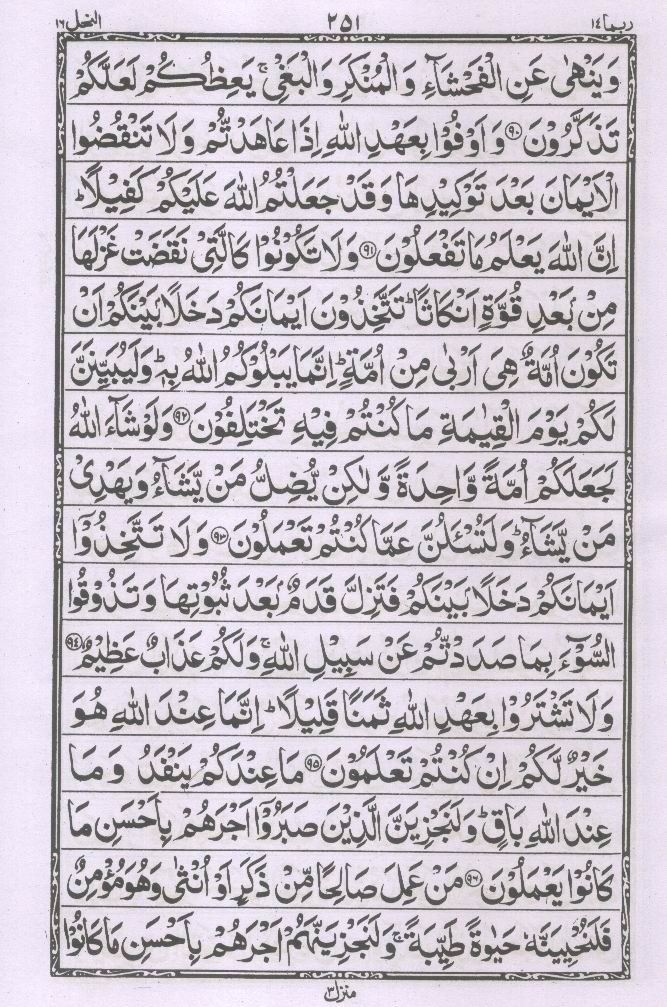 ربما ١٤ ٢٥١ النحل ١٦
وَيَنْهٰى عَنِ الْفَحْشَآءِ وَالْمُنْكَرِ وَالْبَغْىِ ۚ يَعِظُكُمْ لَعَلَّكُمْ
تَذَكَّرُوْنَ ﴿٩٠﴾ وَاَوْفُوْا بِعَهْدِ اللّٰهِ اِذَا عَاهَدْتُّمْ وَلَا تَنْقُضُوا
الْاَيْمَانَ بَعْدَ تَوْكِيْدِهَا وَقَدْ جَعَلْتُمُ اللّٰهَ عَلَيْكُمْ كَفِيْلًا ؕ
اِنَّ اللّٰهَ يَعْلَمُ مَا تَفْعَلُوْنَ ﴿٩١﴾ وَلَا تَكُوْنُوْا كَالَّتِىْ نَقَضَتْ غَزْلَهَا
مِنْۢ بَعْدِ قُوَّةٍ اَنْكَاثًا ؕ تَتَّخِذُوْنَ اَيْمَانَكُمْ دَخَلًاۢ بَيْنَكُمْ اَنْ
تَكُوْنَ اُمَّةٌ هِىَ اَرْبٰى مِنْ اُمَّةٍ ؕ اِنَّمَا يَبْلُوْكُمُ اللّٰهُ بِهٖ ؕ وَلَيُبَيِّنَنَّ
لَكُمْ يَوْمَ الْقِيٰمَةِ مَا كُنْتُمْ فِيْهِ تَخْتَلِفُوْنَ ﴿٩٢﴾ وَلَوْ شَآءَ اللّٰهُ
لَجَعَلَكُمْ اُمَّةً وَّاحِدَةً وَّلٰكِنْ يُّضِلُّ مَنْ يَّشَآءُ وَيَهْدِىْ
مَنْ يَّشَآءُ ؕ وَلَتُسْـَٔلُنَّ عَمَّا كُنْتُمْ تَعْمَلُوْنَ ﴿٩٣﴾ وَلَا تَتَّخِذُوْۤا
اَيْمَانَكُمْ دَخَلًاۢ بَيْنَكُمْ فَتَزِلَّ قَدَمٌۢ بَعْدَ ثُبُوْتِهَا وَتَذُوْقُوا
السُّوْٓءَ بِمَا صَدَدْتُّمْ عَنْ سَبِيْلِ اللّٰهِ ۚ وَلَكُمْ عَذَابٌ عَظِيْمٌ ﴿٩٤﴾
وَلَا تَشْتَرُوْا بِعَهْدِ اللّٰهِ ثَمَنًا قَلِيْلًا ؕ اِنَّمَا عِنْدَ اللّٰهِ هُوَ
خَيْرٌ لَّكُمْ اِنْ كُنْتُمْ تَعْلَمُوْنَ ﴿٩٥﴾ مَا عِنْدَكُمْ يَنْفَدُ وَمَا
عِنْدَ اللّٰهِ بَاقٍ ؕ وَلَنَجْزِيَنَّ الَّذِيْنَ صَبَرُوْۤا اَجْرَهُمْ بِاَحْسَنِ مَا
كَانُوْا يَعْمَلُوْنَ ﴿٩٦﴾ مَنْ عَمِلَ صَالِحًا مِّنْ ذَكَرٍ اَوْ اُنْثٰى وَهُوَ مُؤْمِنٌ
فَلَنُحْيِيَنَّهٗ حَيٰوةً طَيِّبَةً ۚ وَلَنَجْزِيَنَّهُمْ اَجْرَهُمْ بِاَحْسَنِ مَا كَانُوْا
منزل ٣